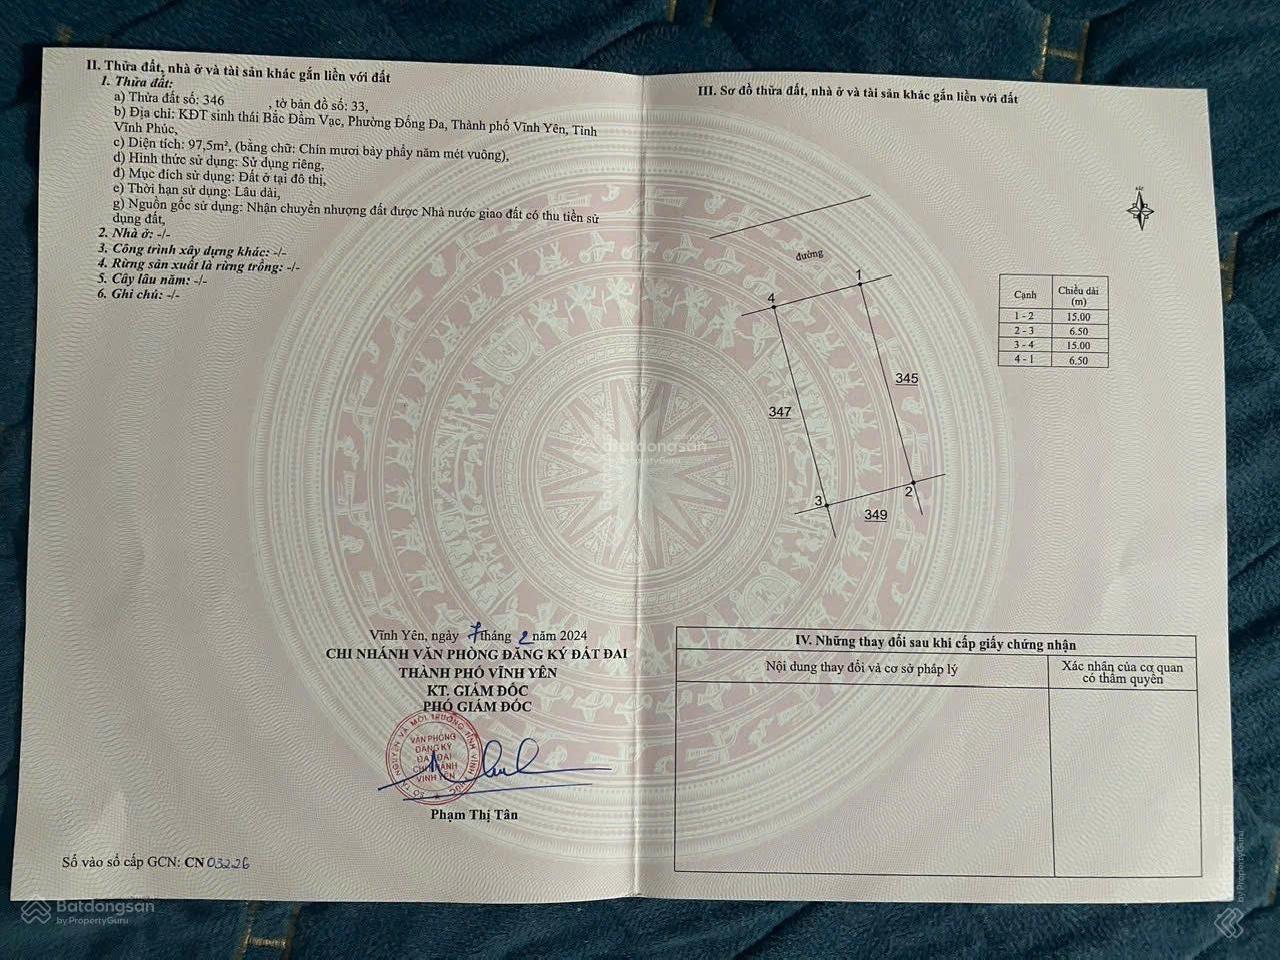 II. Thửa đất, nhà ở và tài sản khác gắn liền với đất
1. Thửa đất:
a) Thửa đất số: 346 , tờ bản đồ số: 33,
b) Địa chỉ: KĐT sinh thái Bắc Đầm Vạc, Phường Đống Đa, Thành phố Vĩnh Yên, Tỉnh
Vĩnh Phúc,
c) Diện tích: 97,5m², (bằng chữ: Chín mươi bảy phẩy năm mét vuông),
d) Hình thức sử dụng: Sử dụng riêng,
đ) Mục đích sử dụng: Đất ở tại đô thị,
e) Thời hạn sử dụng: Lâu dài,
g) Nguồn gốc sử dụng: Nhận chuyển nhượng đất được Nhà nước giao đất có thu tiền sử
dụng đất,
2. Nhà ở: -/-
3. Công trình xây dựng khác: -/-
4. Rừng sản xuất là rừng trồng: -/-
5. Cây lâu năm: -/-
6. Ghi chú: -/-
Vĩnh Yên, ngày 7 tháng 2 năm 2024
CHI NHÁNH VĂN PHÒNG ĐĂNG KÝ ĐẤT ĐAI
THÀNH PHỐ VĨNH YÊN
KT. GIÁM ĐỐC
PHÓ GIÁM ĐỐC
VĂN PHÒNG
ĐĂNG KÝ
ĐẤT ĐAI
CHI NHÁNH
VĨNH YÊN
Phạm Thị Tân
Số vào sổ cấp GCN: CN 03226
III. Sơ đồ thửa đất, nhà ở và tài sản khác gắn liền với đất
BẮC
đường
1
4
345
347
3
2
349
Cạnh Chiều dài (m)
1 - 2 15.00
2 - 3 6.50
3 - 4 15.00
4 - 1 6.50
IV. Những thay đổi sau khi cấp giấy chứng nhận
Nội dung thay đổi và cơ sở pháp lý
Xác nhận của cơ quan
có thẩm quyền
Batdongsan
by PropertyGuru
Batdongsan
by PropertyGuru
by PropertyGuru